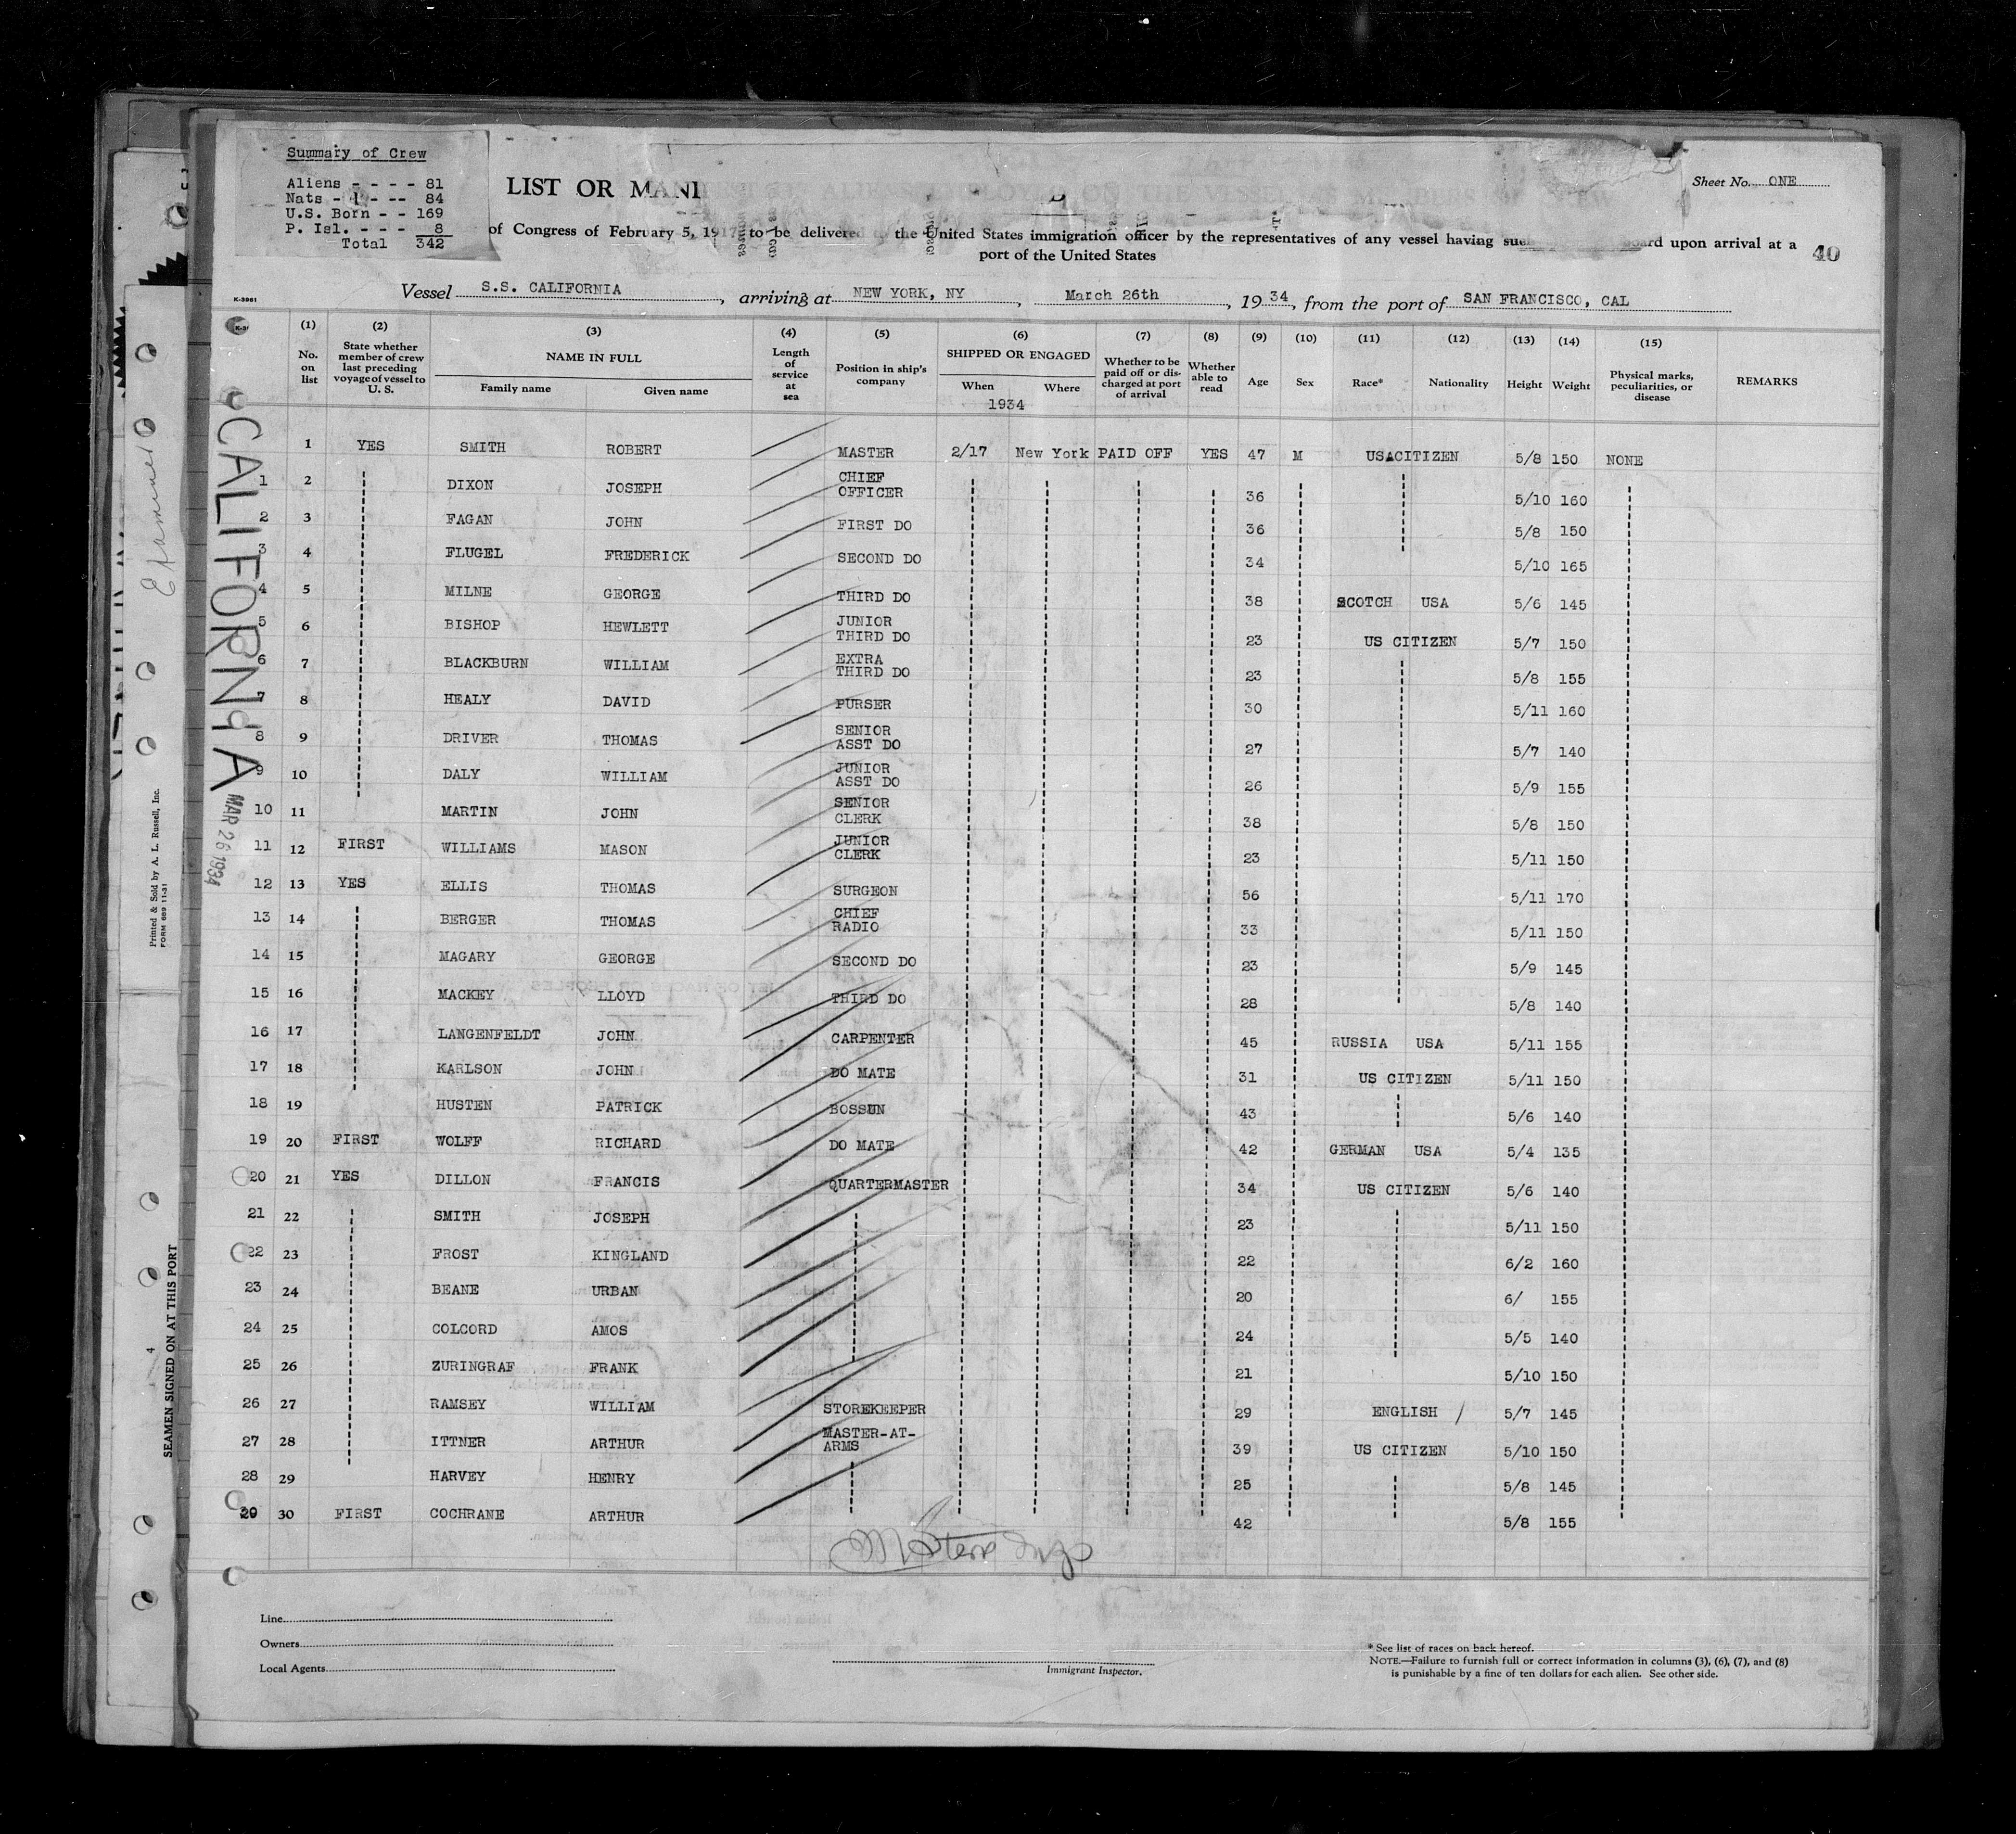 Summary of Crew
Aliens - - - - 81
Nats - - - -- 84
U.S. Born - - 169
P. Isl. - - - 8
Total 342
LIST OR MANI
Sheet No. ONE
of Congress of February 5, 1917, to be delivered to the United States immigration officer by the representatives of any vessel having such board upon arrival at a
port of the United States
40
K-3961
Vessel S.S. CALIFORNIA, arriving at NEW YORK, NY, March 26th, 1934, from the port of SAN FRANCISCO, CAL
(1) (2) (3) (4) (5) (6) (7) (8) (9) (10) (11) (12) (13) (14) (15)
No. on list
State whether member of crew last preceding voyage of vessel to U. S.
NAME IN FULL
Family name Given name
Length of service at sea
Position in ship's company
SHIPPED OR ENGAGED
When Where
1934
Whether to be paid off or discharged at port of arrival
Whether able to read
Age
Sex
Race*
Nationality
Height
Weight
Physical marks, peculiarities, or disease
REMARKS
1 YES SMITH ROBERT MASTER 2/17 New York PAID OFF YES 47 M USA CITIZEN 5/8 150 NONE
1 2 DIXON JOSEPH CHIEF OFFICER 36 5/10 160
2 3 FAGAN JOHN FIRST DO 36 5/8 150
3 4 FLUGEL FREDERICK SECOND DO 34 5/10 165
4 5 MILNE GEORGE THIRD DO 38 SCOTCH USA 5/6 145
5 6 BISHOP HEWLETT JUNIOR THIRD DO 23 US CITIZEN 5/7 150
6 7 BLACKBURN WILLIAM EXTRA THIRD DO 23 5/8 155
7 8 HEALY DAVID PURSER 30 5/11 160
8 9 DRIVER THOMAS SENIOR ASST DO 27 5/7 140
9 10 DALY WILLIAM JUNIOR ASST DO 26 5/9 155
10 11 MARTIN JOHN SENIOR CLERK 38 5/8 150
11 12 FIRST WILLIAMS MASON JUNIOR CLERK 23 5/11 150
12 13 YES ELLIS THOMAS SURGEON 56 5/11 170
13 14 BERGER THOMAS CHIEF RADIO 33 5/11 150
14 15 MAGARY GEORGE SECOND DO 23 5/9 145
15 16 MACKEY LLOYD THIRD DO 28 5/8 140
16 17 LANGENFELDT JOHN CARPENTER 45 RUSSIA USA 5/11 155
17 18 KARLSON JOHN DO MATE 31 US CITIZEN 5/11 150
18 19 HUSTEN PATRICK BOSSUN 43 5/6 140
19 20 FIRST WOLFF RICHARD DO MATE 42 GERMAN USA 5/4 135
20 21 YES DILLON FRANCIS QUARTERMASTER 34 US CITIZEN 5/6 140
21 22 SMITH JOSEPH 23 5/11 150
22 23 FROST KINGLAND 22 6/2 160
23 24 BEANE URBAN 20 6/ 155
24 25 COLCORD AMOS 24 5/5 140
25 26 ZURINGRAF FRANK 21 5/10 150
26 27 RAMSEY WILLIAM STOREKEEPER 29 ENGLISH 5/7 145
27 28 ITTNER ARTHUR MASTER-AT-ARMS 39 US CITIZEN 5/10 150
28 29 HARVEY HENRY 25 5/8 145
29 30 FIRST COCHRANE ARTHUR 42 5/8 155
Line
Owners
Local Agents
Immigrant Inspector.
* See list of races on back hereof.
NOTE.—Failure to furnish full or correct information in columns (3), (6), (7), and (8)
is punishable by a fine of ten dollars for each alien. See other side.
CALIFORNIA
MAR 26 1934
Printed & Sold by A. L. Russell, Inc.
FORM 689 11-31
SEAMEN SIGNED ON AT THIS PORT
4